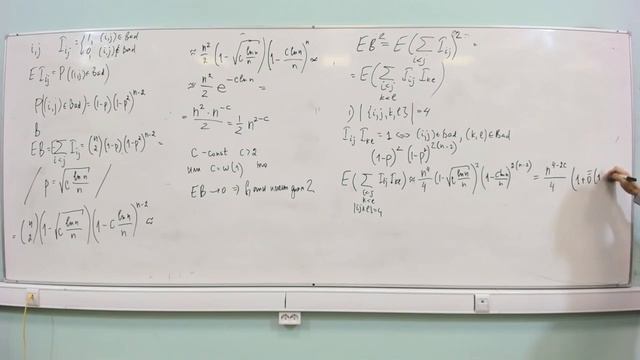 i,j I_{ij} = { 1, (i,j) ∈ Bad
0, (i,j) ∉ Bad
E I_{ij} = P((i,j) ∈ Bad)
P((i,j) ∈ Bad) = (1-p)(1-p²)^{n-2}
B
EB = E∑_{i<j} I_{ij} = (n 2)(1-p)(1-p²)^{n-2} =
/ p = √(c ln n / n) /
= (n 2)(1 - √(c ln n / n))(1 - c ln n / n)^{n-2} ≈
≈ n²/2 (1 - √(c ln n / n))(1 - c ln n / n)^n ≈
≈ n²/2 e^{-c ln n} =
= n² · n^{-c} / 2 = 1/2 n^{2-c}
c - const c > 2
или c = ω(1) то
EB → 0 ⇒
EB² = E(∑_{i<j} I_{ij})² =
= E(∑_{i<j k<l} I_{ij} I_{kl})
1) |{i,j,k,l}| = 4
I_{ij} I_{kl} = 1 ⇔ (i,j) ∈ Bad, (k,l) ∈ Bad
(1-p)² (1-p²)^{2(n-2)}
E(∑_{i<j k<l |{ijkl}|=4} I_{ij} I_{kl}) ≈ n⁴/4 (1 - √(c ln n / n))² (1 - c ln n / n)^{2(n-2)} = n^{4-2c}/4 (1 + ō(1